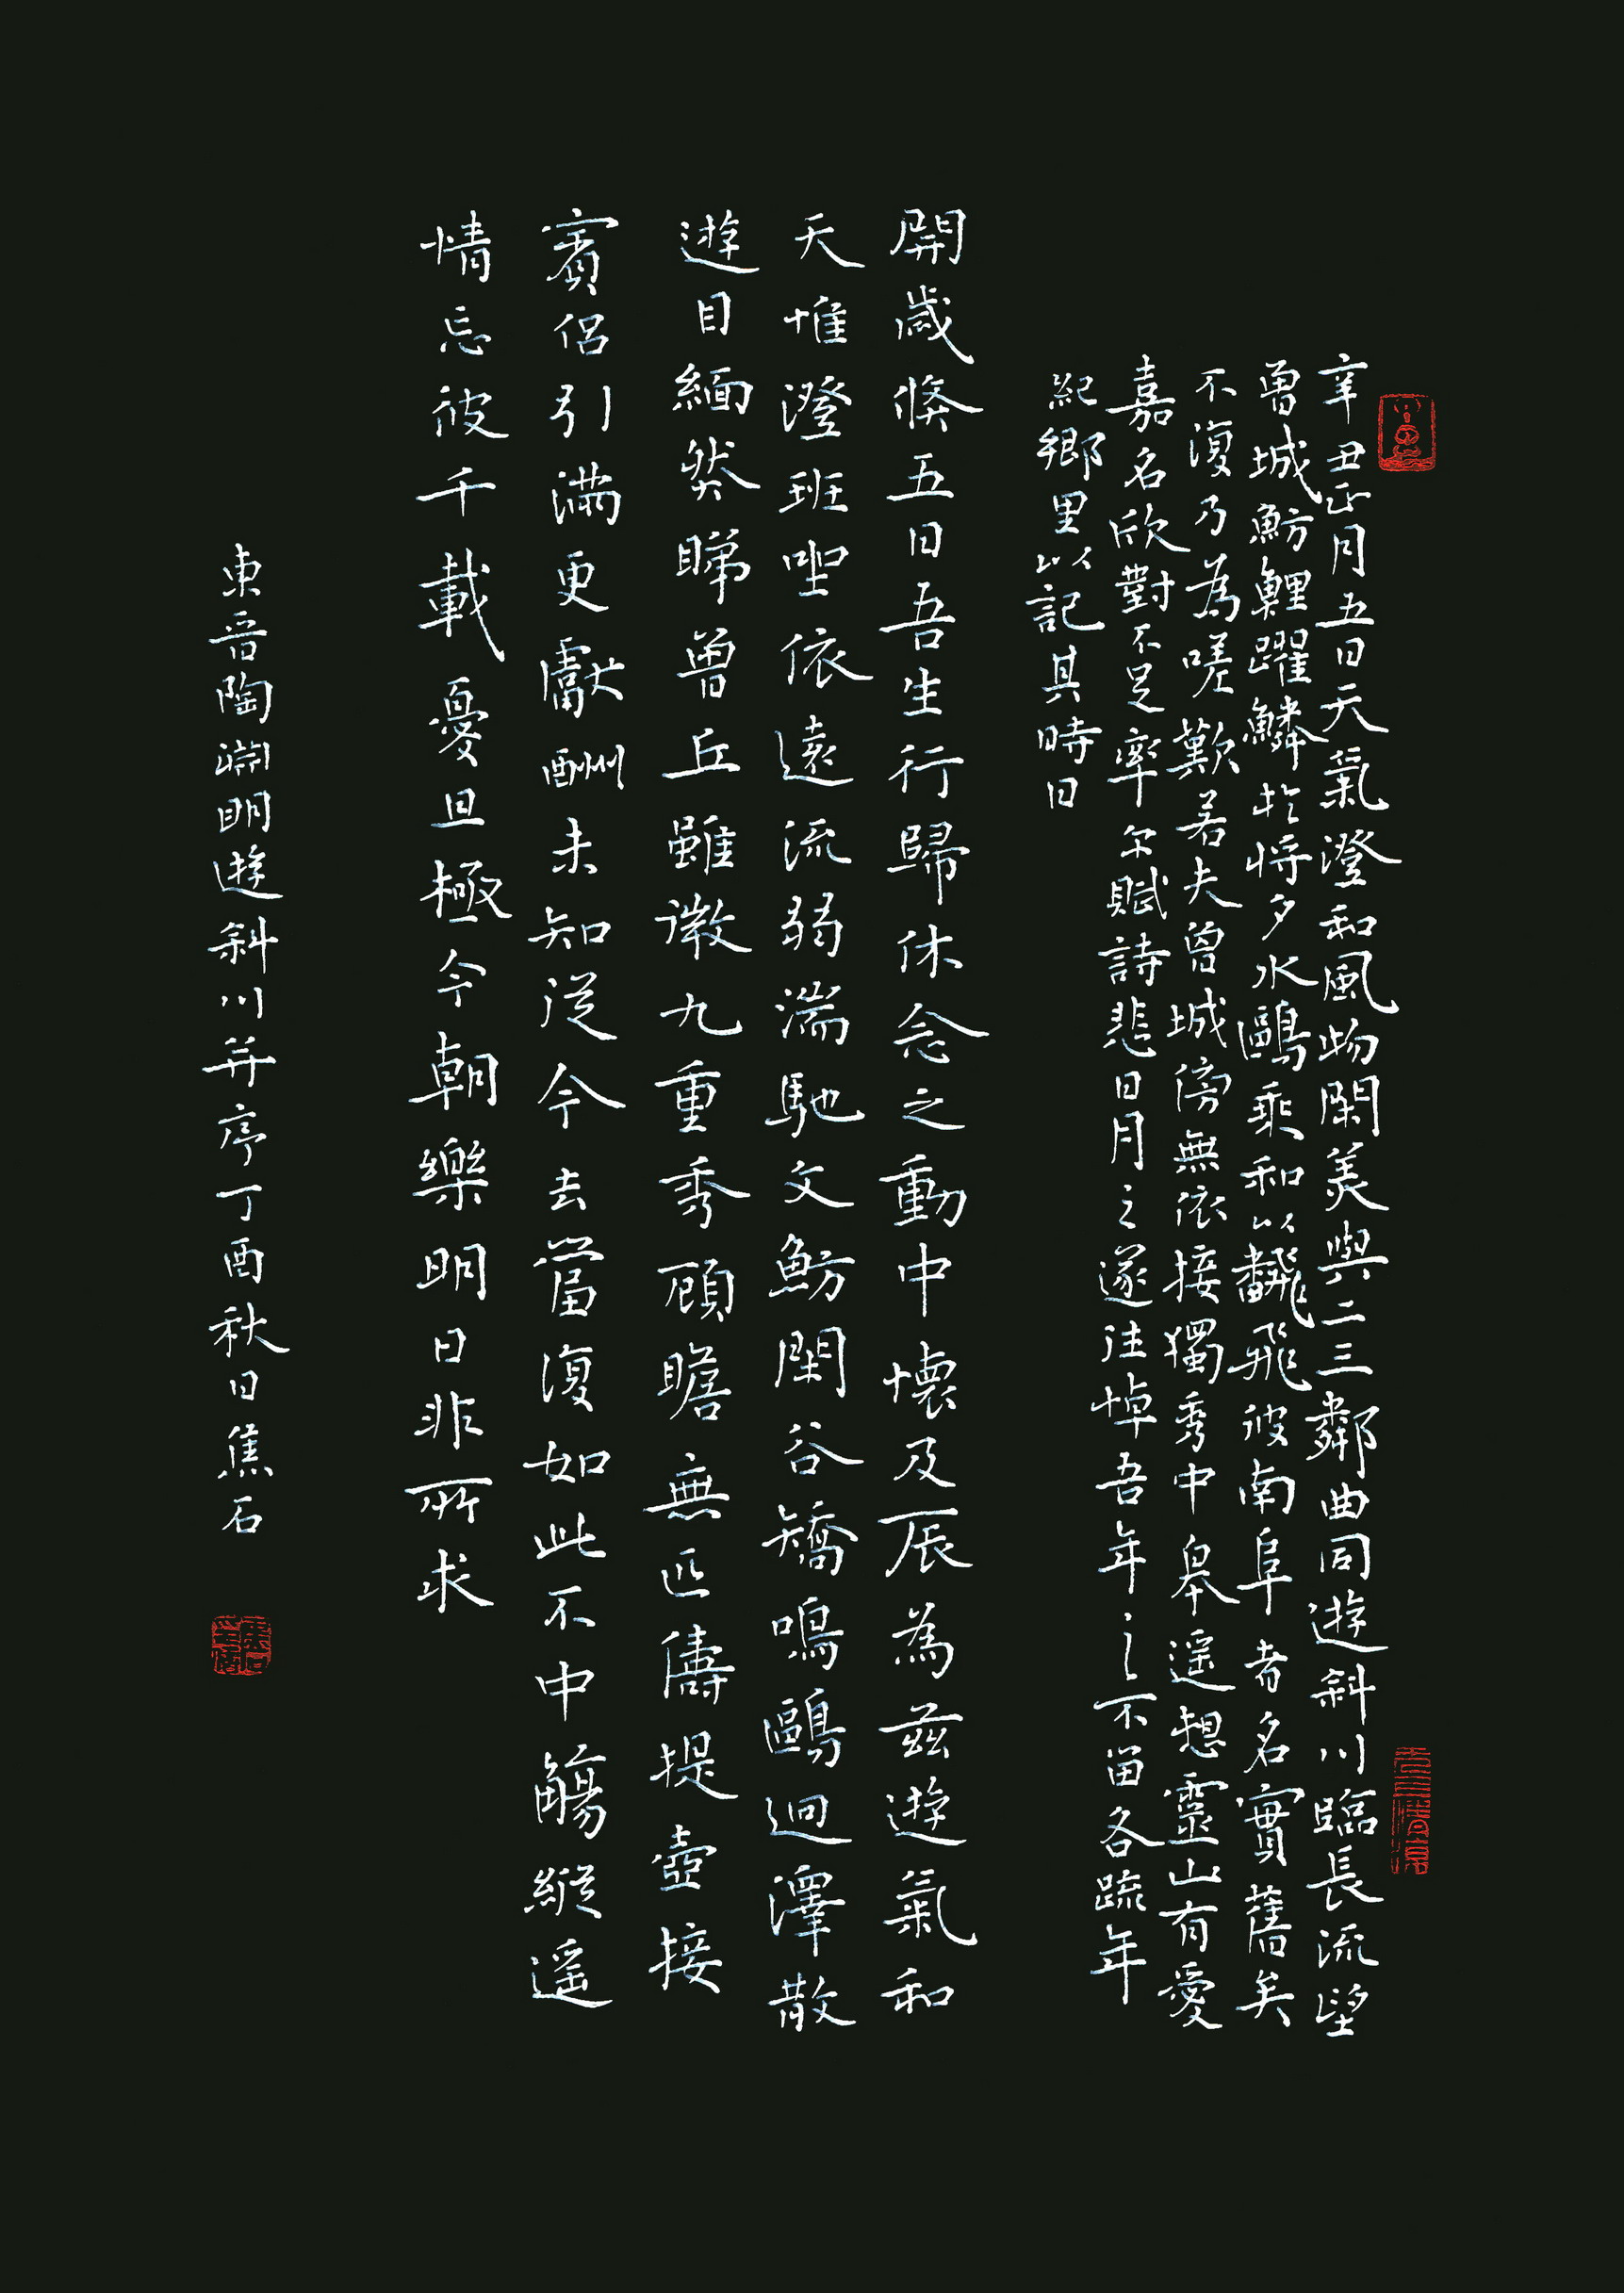 辛丑正月五日天氣澄和風物閑美與二三鄰曲同遊斜川臨長流望
曾城魴鯉躍鱗於將夕水鷗乘和以翻飛彼南阜者名實舊矣
不復乃為嗟歎若夫曾城傍無依接獨秀中皋遥想靈山有愛
嘉名欣對不足率尔賦詩悲日月之遂往悼吾年之不留各疏年
紀鄉里以記其時日
開歲倏五日吾生行歸休念之動中懷及辰為兹遊氣和
天惟澄班坐依遠流弱湍馳文魴閑谷矯鳴鷗迥澤散
遊目緬然睇曾丘雖微九重秀顧瞻無匹儔提壺接
賓侣引滿更獻酬未知從今去當復如此不中觴縱遥
情忘彼千載憂且極今朝樂明日非所求
東晉陶淵明遊斜川并序丁酉秋日焦石